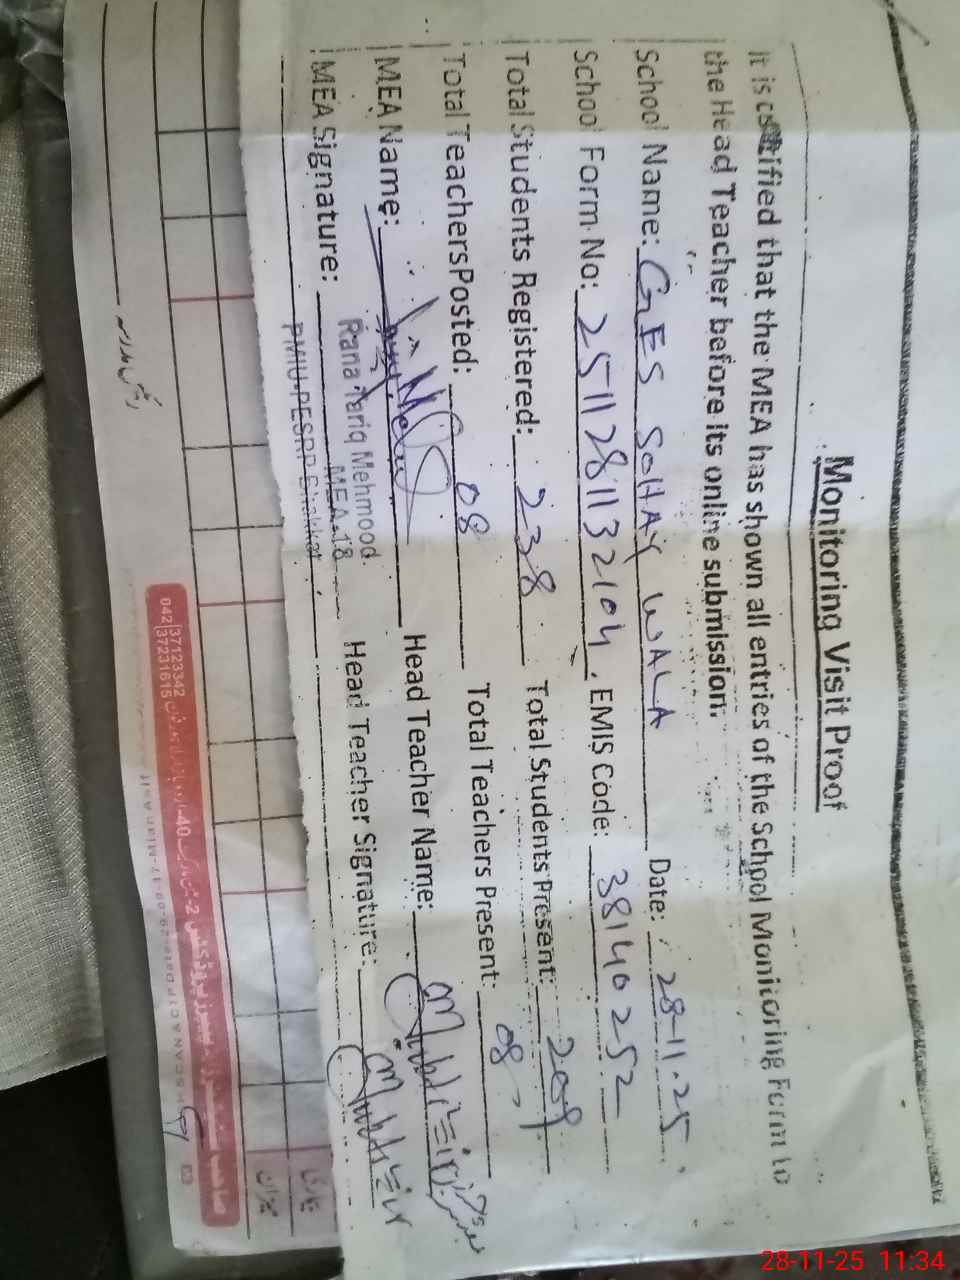 Monitoring Visit Proof
It is certified that the MEA has shown all entries of the School Monitoring Form to
the Head Teacher before its online submission.
School Name: GES SOHAY WALA Date: 28-11-25
School Form No: 2511281132104, EMIS Code: 38140252
Total Students Registered: 238 Total Students Present: 209
Total TeachersPosted: 08 Total Teachers Present: 08
MEA Name: Head Teacher Name:
Rana Tariq Mehmood
MEA-18
MEA Signature: Head Teacher Signature:
PMIU-PESRP Bhakkar
042 37123342
37231615
28-11-25 11:34